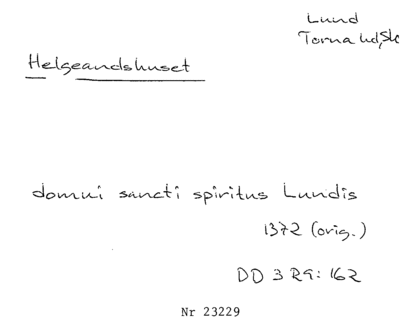 Lund
Torna hd, Sk
Helgeandshuset
domui sancti spiritus Lundis
1372 (orig.)
DD 3 R9: 162
Nr 23229